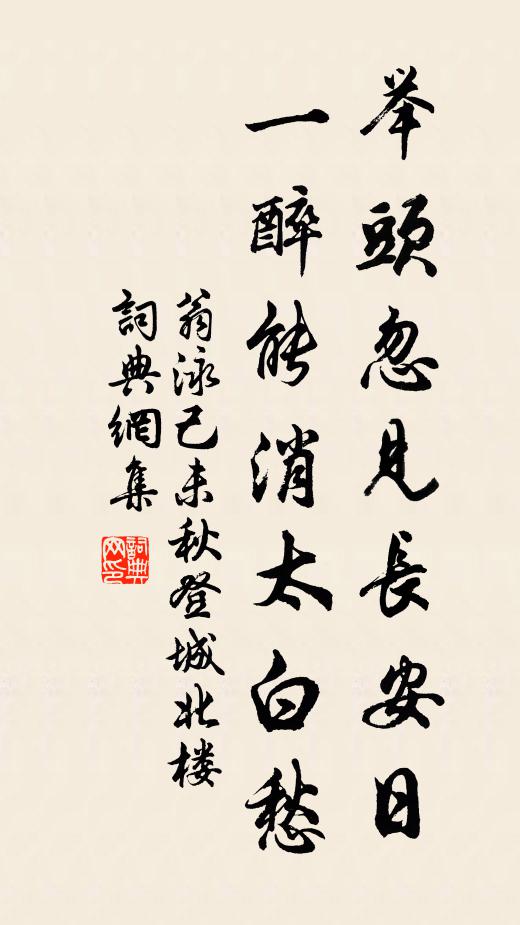 举頭忽見長安日
一醉能消太白愁
翁泳己未秋登城北楼
詞典網集
詞典网印